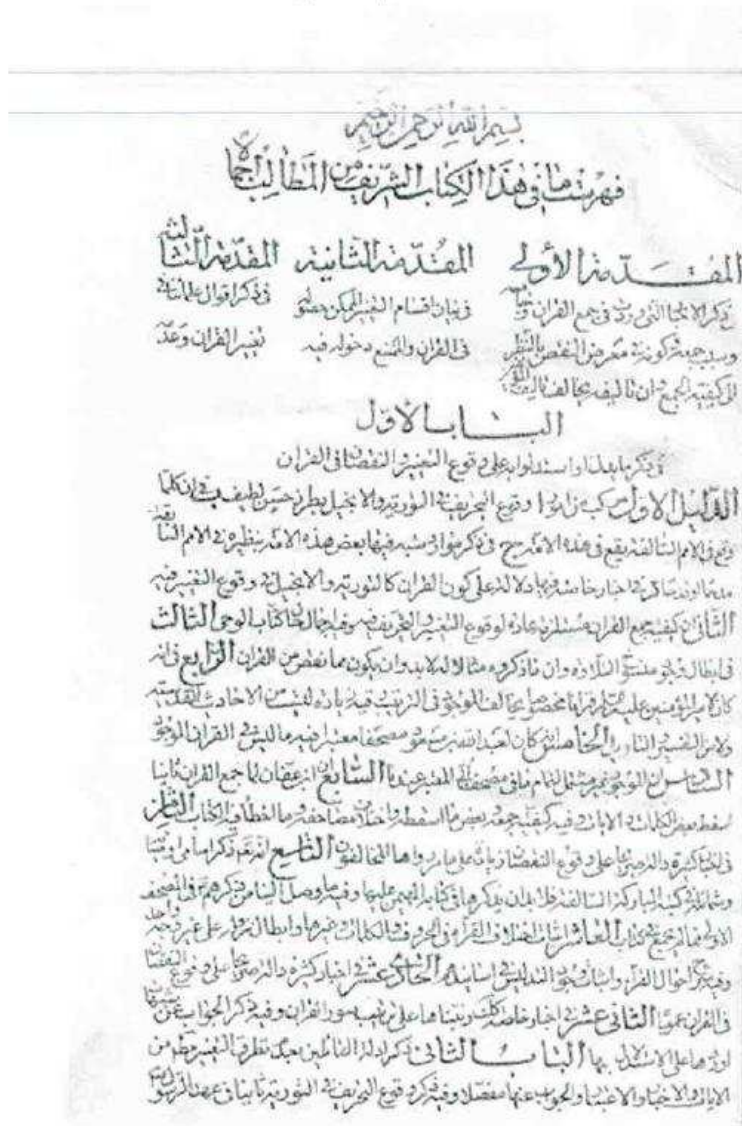 بسم الله الرحمن الرحيم
فهرست ما في هذا الكتاب الشريف من المطالب اجمالا
المقدمة الأولى
في ذكر الاخبار التي وردت في جمع القران و
وسبب جمعه وكونه في معرض النقص بالنظر
الى كيفية الجمع وان تاليفه يخالف تاليف
المقدمة الثانية
في بيان اقسام التغيير الممكن حصوله
في القران والممتنع دخوله فيه
المقدمة الثالثة
في ذكر اقوال علمائنا في
تغيير القران وعدمه
الباب الأول
في ذكر ما استدلوا به على وقوع التغيير والنقصان في القران
الدليل الاول وقوع التحريف في التورية والانجيل بطرز حسن لطيف في ان كلما
وقع في الامم السالفة يقع في هذه الامة في ذكر موارد شبه فيها بعض هذه الامة بنظيره في الامم السابقة
في اخبار خاصة فيها دلالة على كون القران كالتورية والانجيل في وقوع التغيير فيه
الثاني ان كيفية جمع القران مستلزمة عادة لوقوع التغيير والتحريف فيه وفيه كتاب الوحي الثالث
في ابطال وجود منسوخ التلاوة وان ما ذكروه مثالا له لا بد وان يكون مما نقص من القران الرابع في انه
كان لامير المؤمنين عليه السلام قرانا مخصوصا يخالف الموجود في الترتيب وفيه زيادة ليست من الاحاديث القدسية
ولا من التفسير والتاويل الخامس انه كان لعبد الله بن مسعود مصحفا معتبرا فيه ما ليس في القران الموجود
السادس ان الموجود غير مشتمل لتمام ما في مصحف ابي المعتبر عندنا السابع ان ابن عفان لما جمع القران ثانيا
اسقط بعض الكلمات والايات وفيه كيفية جمعه وبعض ما اسقطه واختلاف مصاحفه الثامن
في اخبار كثيرة دالة صريحا على وقوع النقصان زيادة على ما مر رواها المخالفون التاسع انه تعالى ذكر اسامي اوصيائه
وشمائلهم في كتبه المباركة السالفة فلا بد ان يذكرها في كتابه المهيمن عليها وفيه ما وصل الينا من ذكرهم في الصحف
الاولى العاشر اثبات اختلاف القراء في الحروف والكلمات وغيرها وابطال نزوله على غير وجه واحد
وفيه احوال القراء واثبات وجود التدليس في اسانيدهم الحادي عشر في اخبار كثيرة دالة صريحا على وقوع النقصان
في القران عموما الثاني عشر في اخبار خاصة كذلك رتبناها على ترتيب سور القران وفيه ذكر الجواب عن
على الاستدلال بها الباب الثاني في ذكر ادلة القائلين بعدم تطرق التغيير من
الايات والاخبار والاعتبار والجواب عنها مفصلا وفيه ذكر وقوع التحريف في التورية ثانيا في عهد الرسول